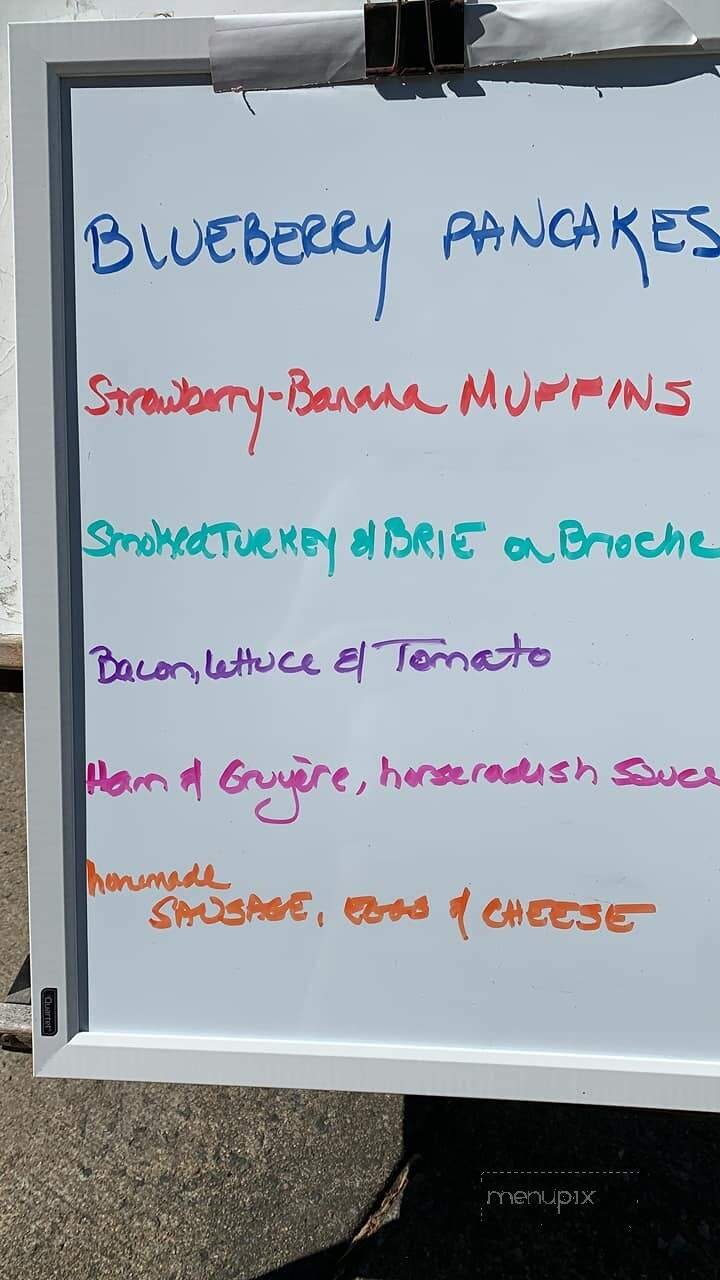 BLUEBERRY PANCAKES
Strawberry-Banana MUFFINS
Smoked TURKEY & BRIE on Brioche
Bacon, lettuce & Tomato
Ham & Gruyère, horseradish sauce
homemade
SAUSAGE, EGGS & CHEESE
Quartet
menupix